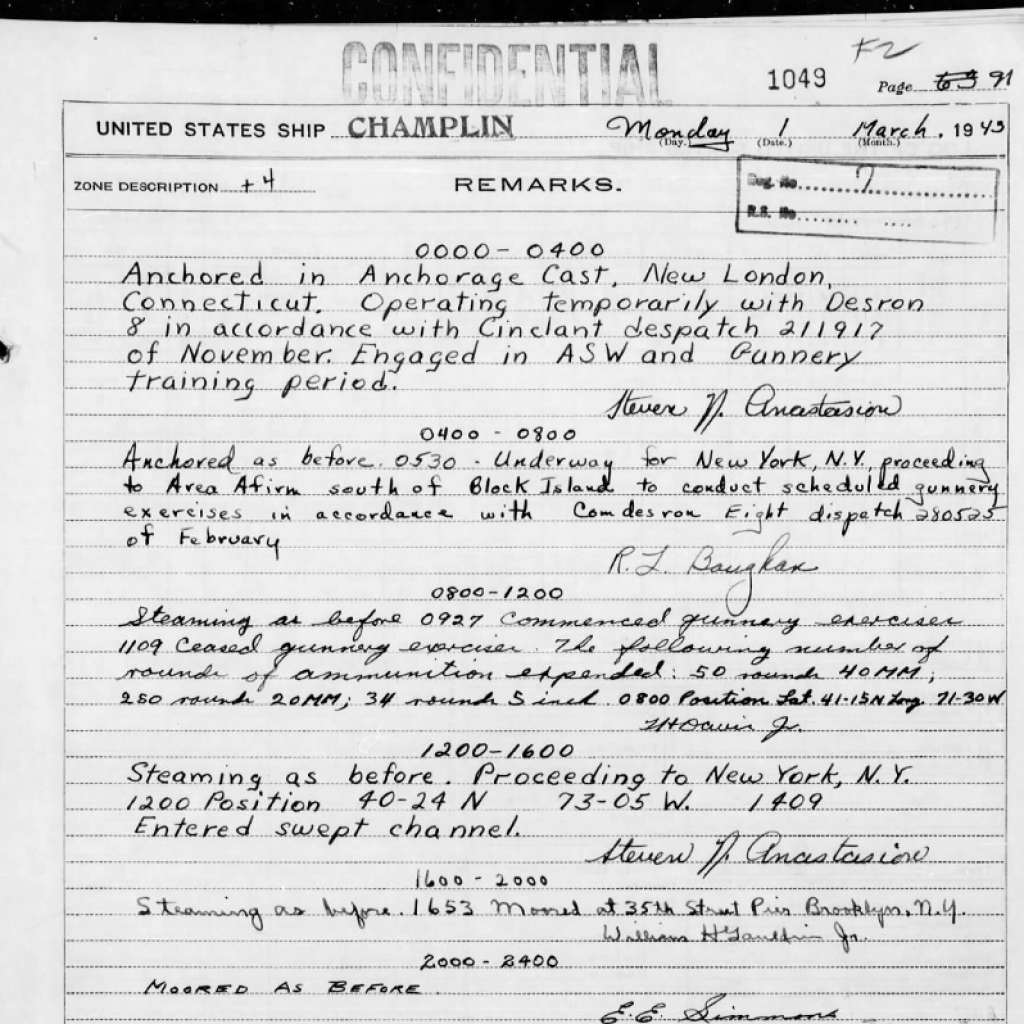 CONFIDENTIAL
F2
1049 Page 63 91
UNITED STATES SHIP CHAMPLIN Monday 1 March, 1943
(Day.) (Date.) (Month.)
ZONE DESCRIPTION +4 REMARKS.
Reg. No. 7
R.S. No.
0000-0400
Anchored in Anchorage Cast, New London,
Connecticut. Operating temporarily with Desron
8 in accordance with Cinclant despatch 211917
of November. Engaged in ASW and Gunnery
training period.
Steven N. Anastasion
0400 - 0800
Anchored as before. 0530 - Underway for New York, N.Y., proceeding
to Area Afirm south of Block Island to conduct scheduled gunnery
exercises in accordance with Comdesron Eight dispatch 280525
of February
R. L. Baughan
0800-1200
Steaming as before 0927 Commenced gunnery exercises
1109 Ceased gunnery exercises. The following number of
rounds of ammunition expended: 50 rounds 40MM;
250 rounds 20MM; 34 rounds 5 inch. 0800 Position Lat. 41-15N Long. 71-30W
Davis Jr.
1200-1600
Steaming as before. Proceeding to New York, N.Y.
1200 Position 40-24 N 73-05 W. 1409
Entered swept channel.
Steven N. Anastasion
1600 - 2000
Steaming as before. 1653 Moored at 35th Street Pier Brooklyn, N.Y.
William H Jr.
2000 - 2400
MOORED AS BEFORE.
E. E. Simmons